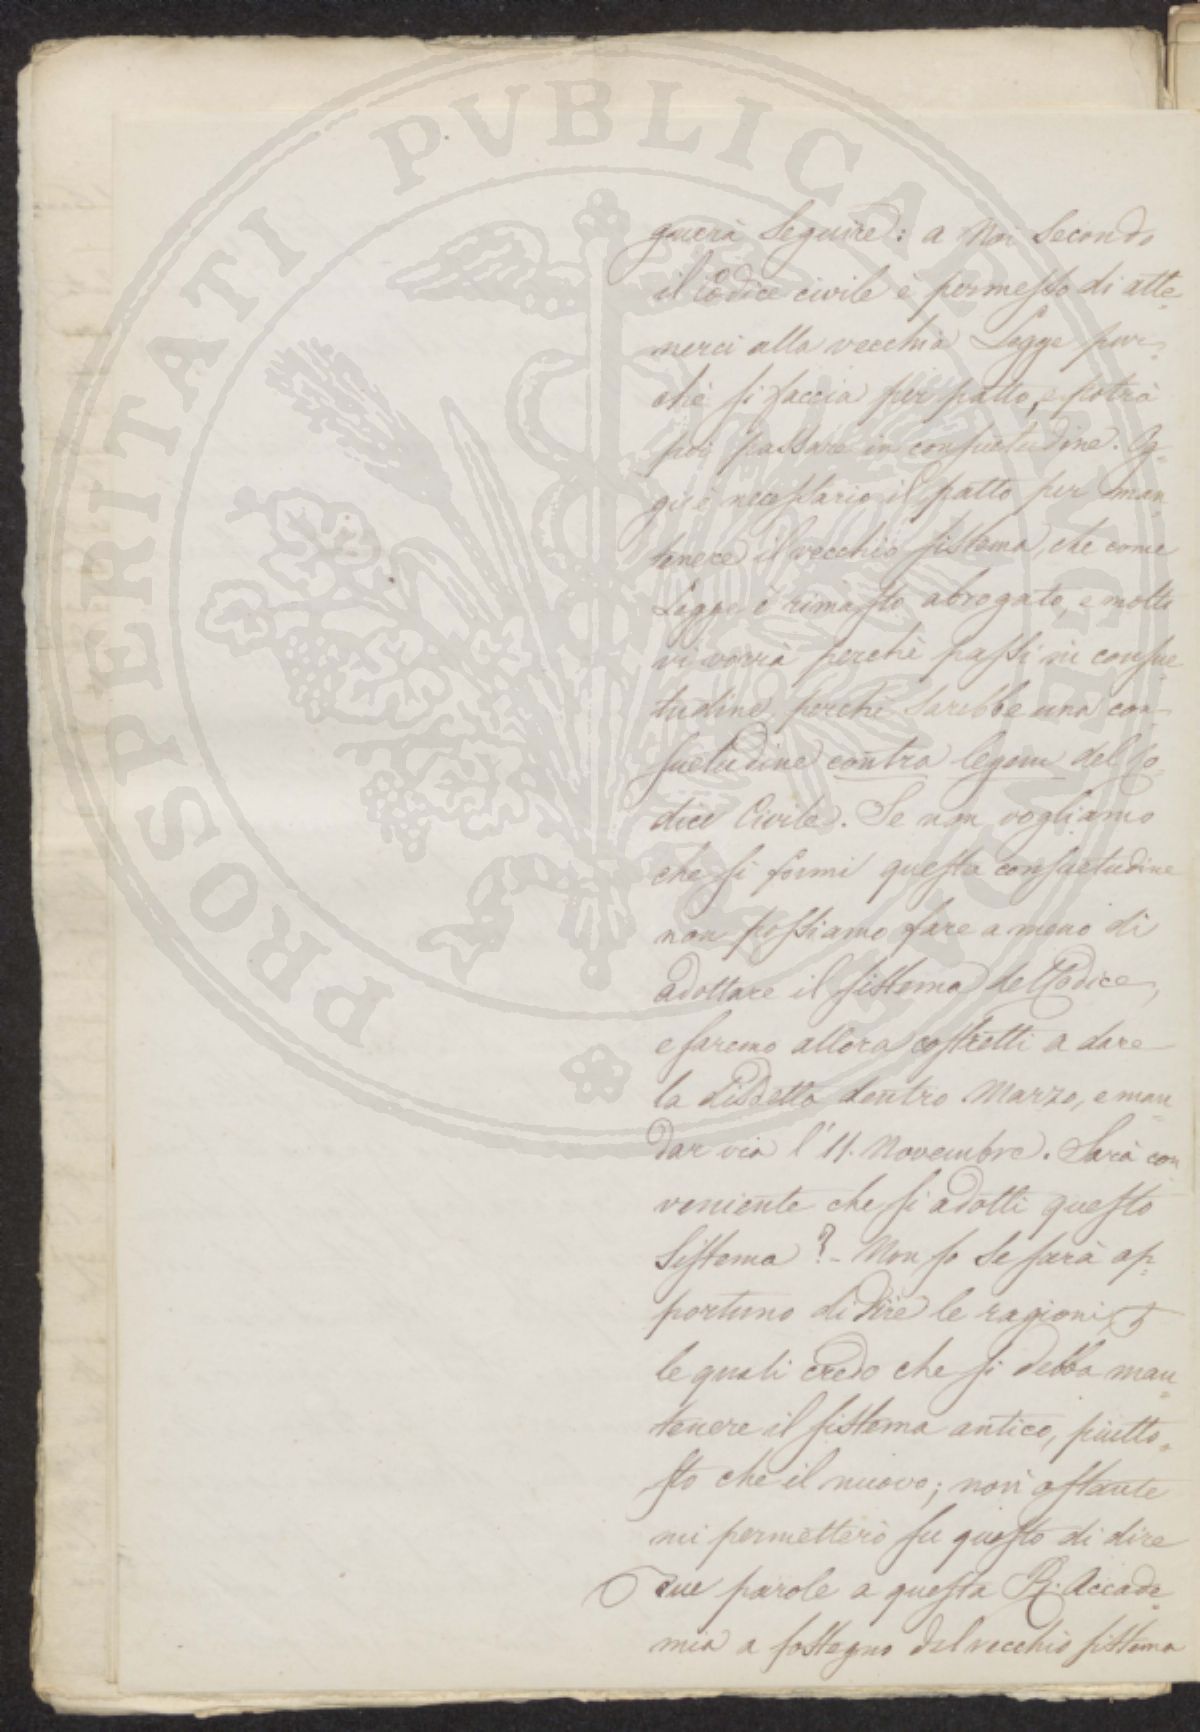 PROSPERITATI PVBLICAE
guerà seguire: a noi secondo
il Codice civile è permesso di atte=
nerci alla vecchia Legge pur=
chè si faccia per patto, e potrà
poi passare in consuetudine. Og=
gi è necessario il patto per man=
tenere il vecchio sistema, che come
Legge è rimasto abrogato, e molto
vi vorrà perchè passi in consue=
tudine, perchè sarebbe una con=
suetudine contra legem del Co=
dice Civile. Se non vogliamo
che si formi questa consuetudine
non possiamo fare a meno di
adottare il sistema del Codice,
e saremo allora costretti a dare
la disdetta dentro Marzo, e man=
dar via l'11. Novembre. Sarà con
veniente che si adotti questo
Sistema? - Non so se sarà op=
portuno di dire le ragioni,
le quali credo che si debba man=
tenere il sistema antico, piutto=
sto che il nuovo; non ostante
mi permetterò su questo di dire
due parole a questa R. Accade=
mia a sostegno del vecchio sistema